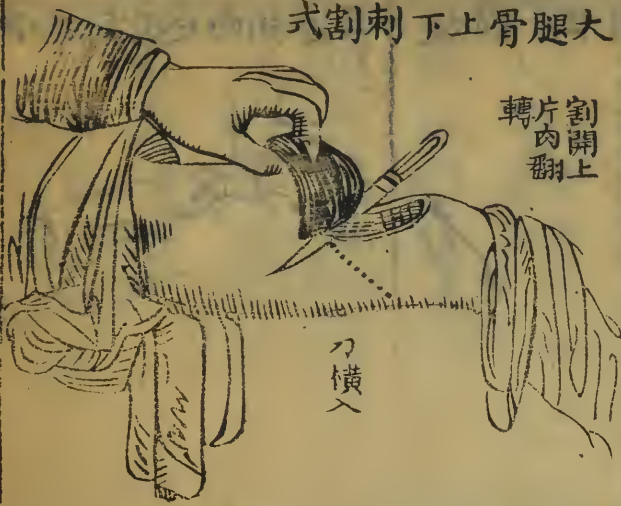 大腿骨上下刺割式
割開上
片肉翻
轉
刀橫入